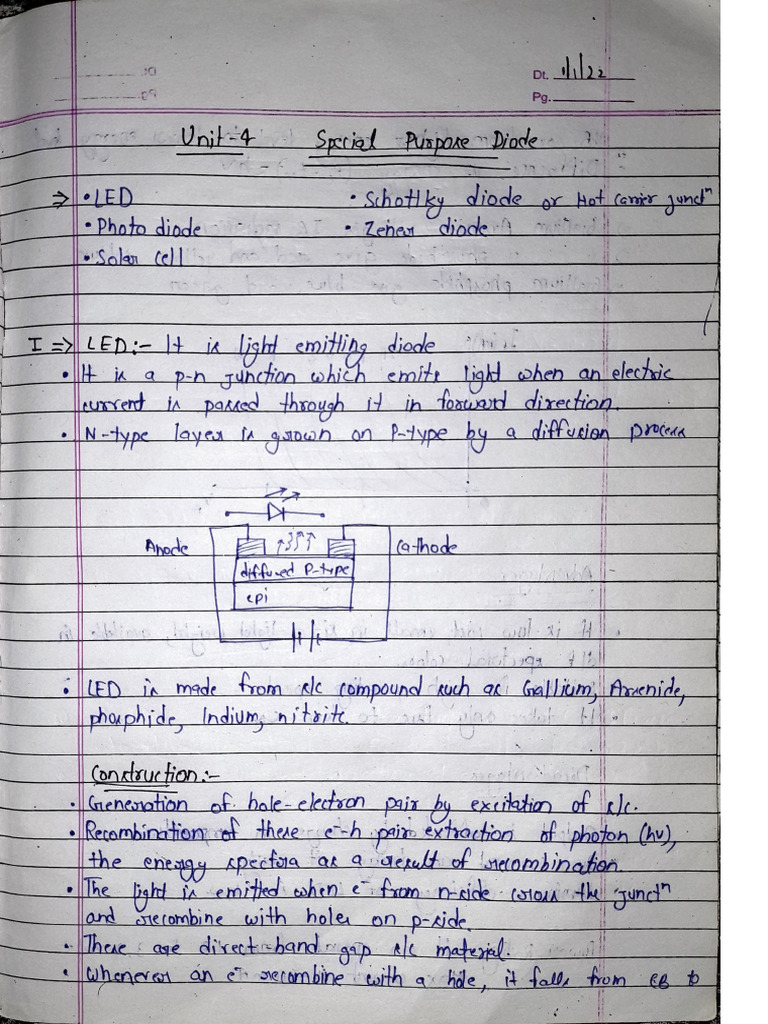 Dt. 1/1/22
Pg.
Unit-4 Special Purpose Diode
⇒ • LED • Schottky diode or Hot Carrier junctⁿ
• Photo diode • Zener diode
• Solar cell
I ⇒ LED:- It is light emitting diode
• It is a p-n junction which emits light when an electric
current is passed through it in forward direction.
• N-type layer is grown on P-type by a diffusion process
Anode Cathode
diffused P-type
epi
• LED is made from s/c compound such as Gallium, Arsenide,
phosphide, Indium, nitrite.
Construction:-
• Generation of hole-electron pair by excitation of s/c.
• Recombination of these e-h pair extraction of photon (hν),
the energy spectra as a result of recombination.
• The light is emitted when e⁻ from n-side cross the junctⁿ
and recombine with holes on p-side.
• These are direct band gap s/c material.
• Whenever an e⁻ recombine with a hole, it falls from CB to